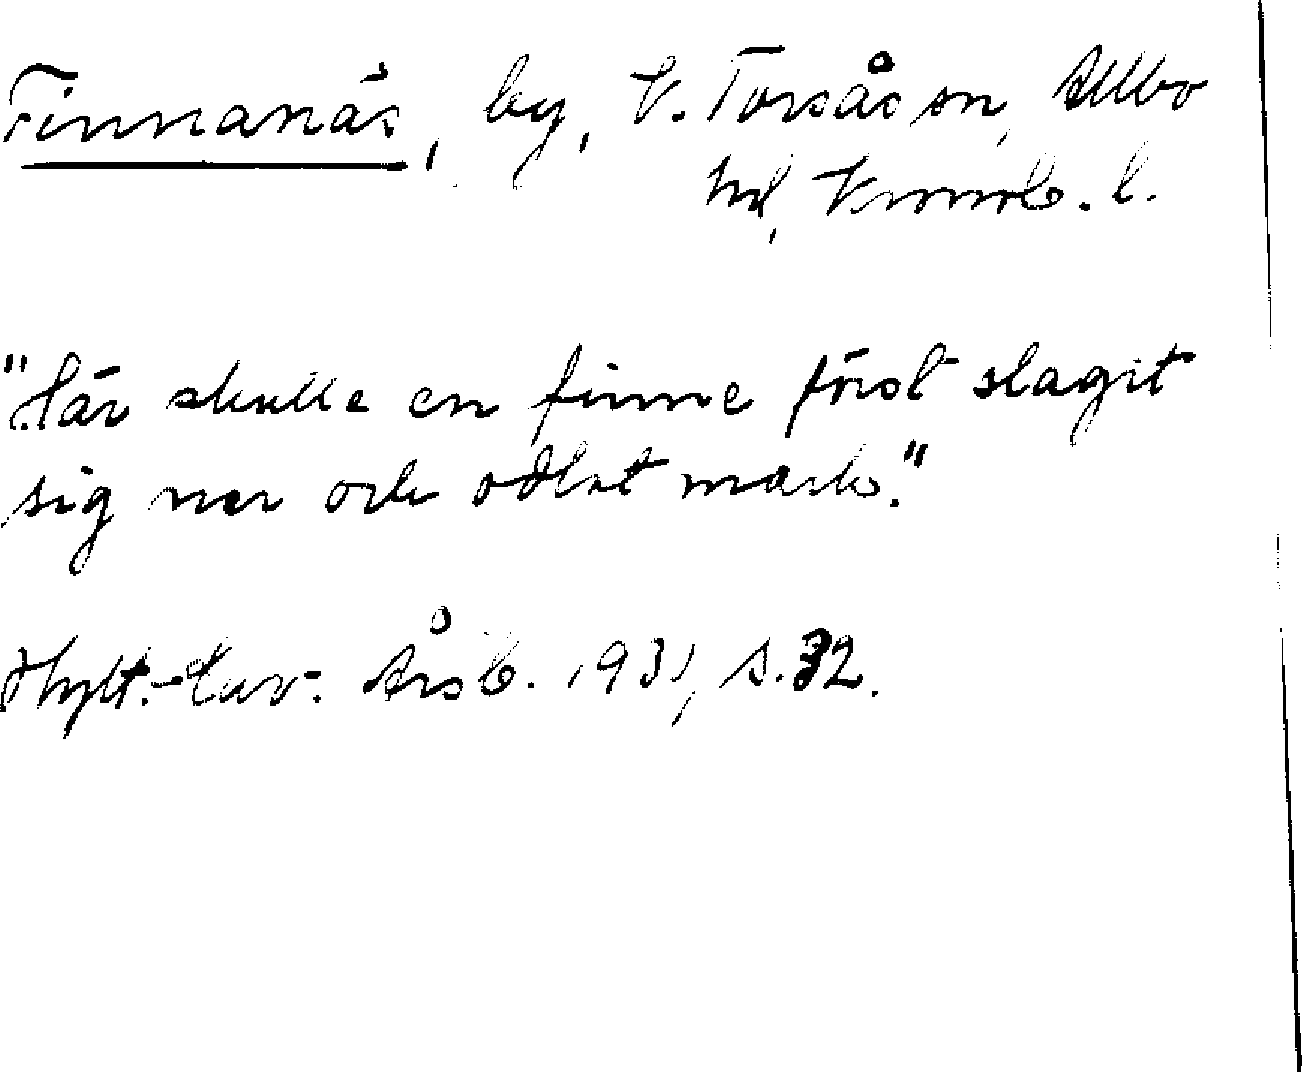 Finnanäs, by, V. Torsås sn, Allbo
hd, Kronob. l.
"Här skulle en finne först slagit
sig ner och odlat mark."
Hylt.-Cav. Årsb. 1931, s. 32.